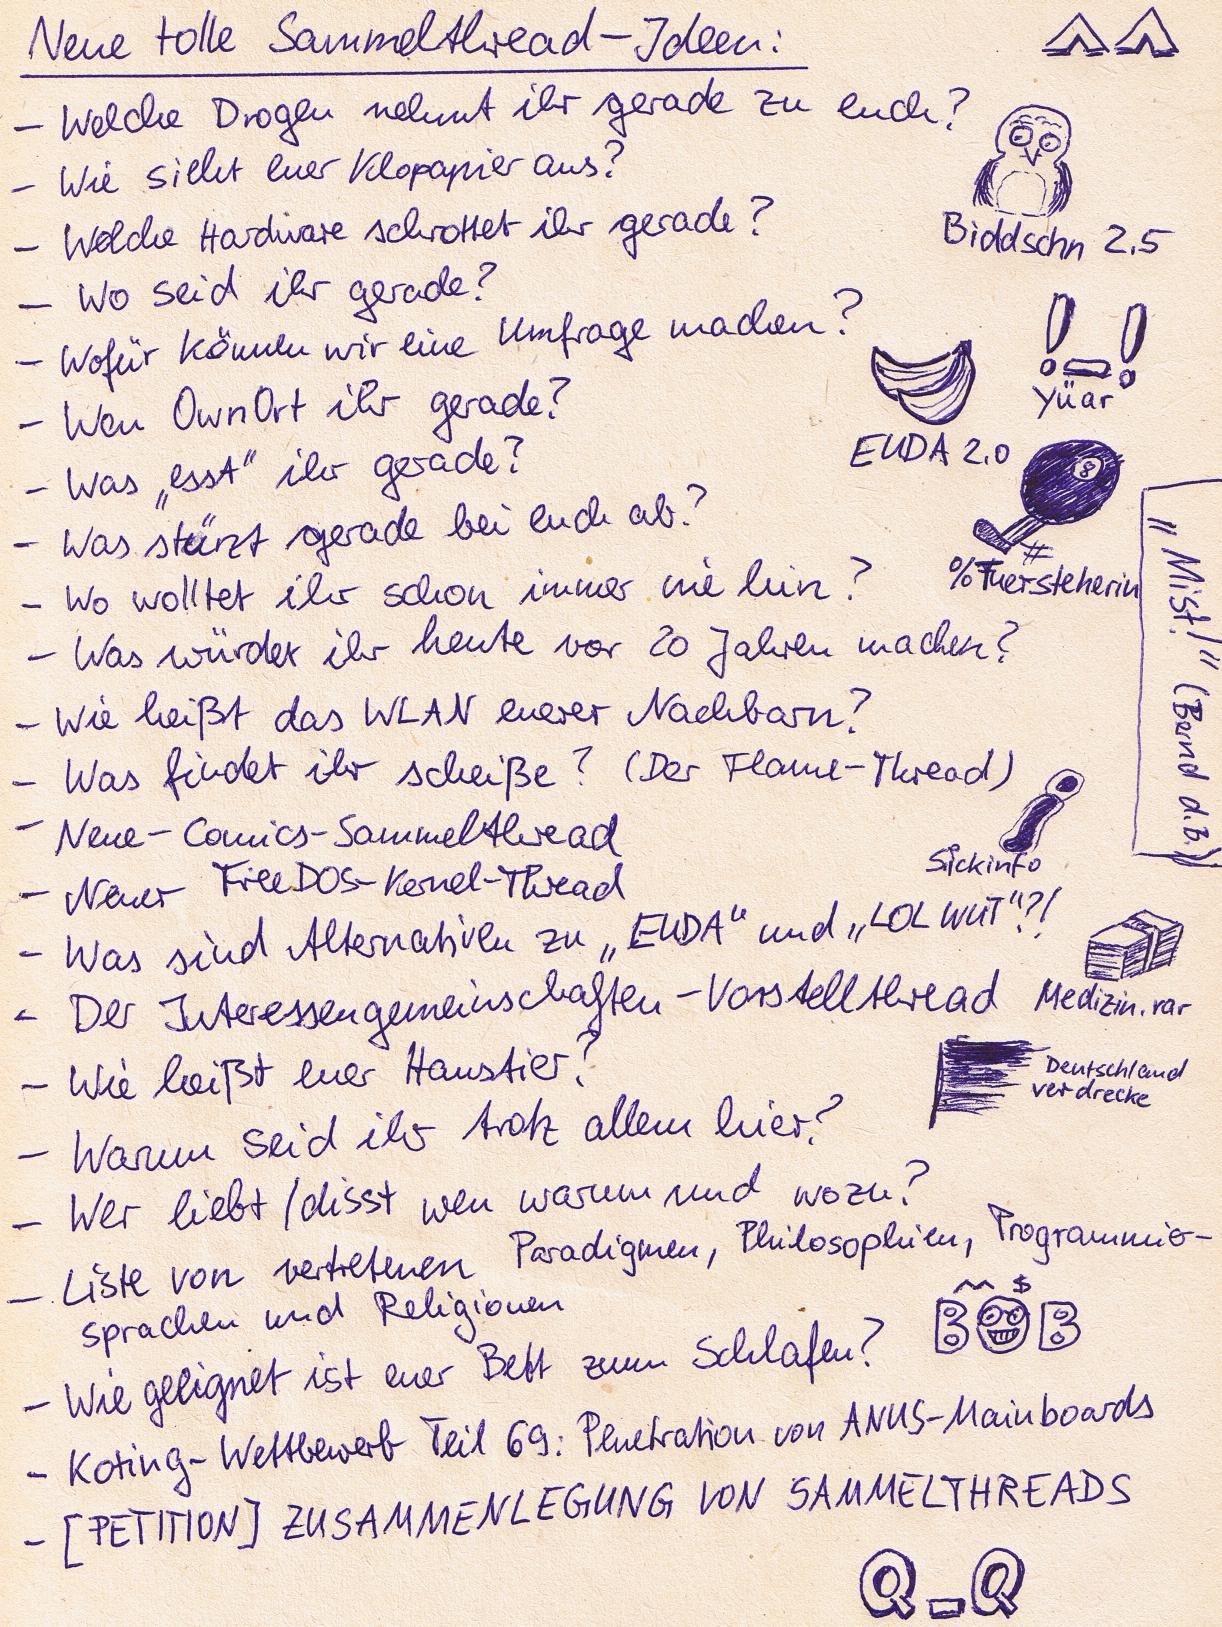 Neue tolle Sammelthread-Ideen:
- Welche Drogen nehmt ihr gerade zu euch?
- Wie sieht euer Klopapier aus?
- Welche Hardware schrottet ihr gerade?
Biddschn 2,5
- Wo seid ihr gerade?
- Wofür können wir eine Umfrage machen?
! _ !
Yüar
- Wen OwnOrt ihr gerade?
EUDA 2.0
- Was „esst“ ihr gerade?
8
- Was stürzt gerade bei euch ab?
- Wo wolltet ihr schon immer nie hin?
%Tuersteherin
„Mist!“ (Bernd d.B.)
- Was würdet ihr heute vor 20 Jahren machen?
- Wie heißt das WLAN euerer Nachbarn?
- Was findet ihr scheiße? (Der Flame-Thread)
- Neue-Comics-Sammelthread
Sickinfo
- Neuer FreeDOS-Kernel-Thread
- Was sind Alternativen zu „EUDA“ und „LOL WUT“?!
- Der Interessengemeinschaften-Vorstellthread
Medizin.rar
- Wie heißt euer Haustier?
Deutschland
verdrecke
- Warum seid ihr trotz allem hier?
- Wer liebt/disst wen warum und wozu?
- Liste von vertretenen Paradigmen, Philosophien, Programmier-
sprachen und Religionen
$
BOB
- Wie geeignet ist euer Bett zum Schlafen?
- Koting-Wettbewerb Teil 69: Penetration von ANUS-Mainboards
- [PETITION] ZUSAMMENLEGUNG VON SAMMELTHREADS
Q_Q